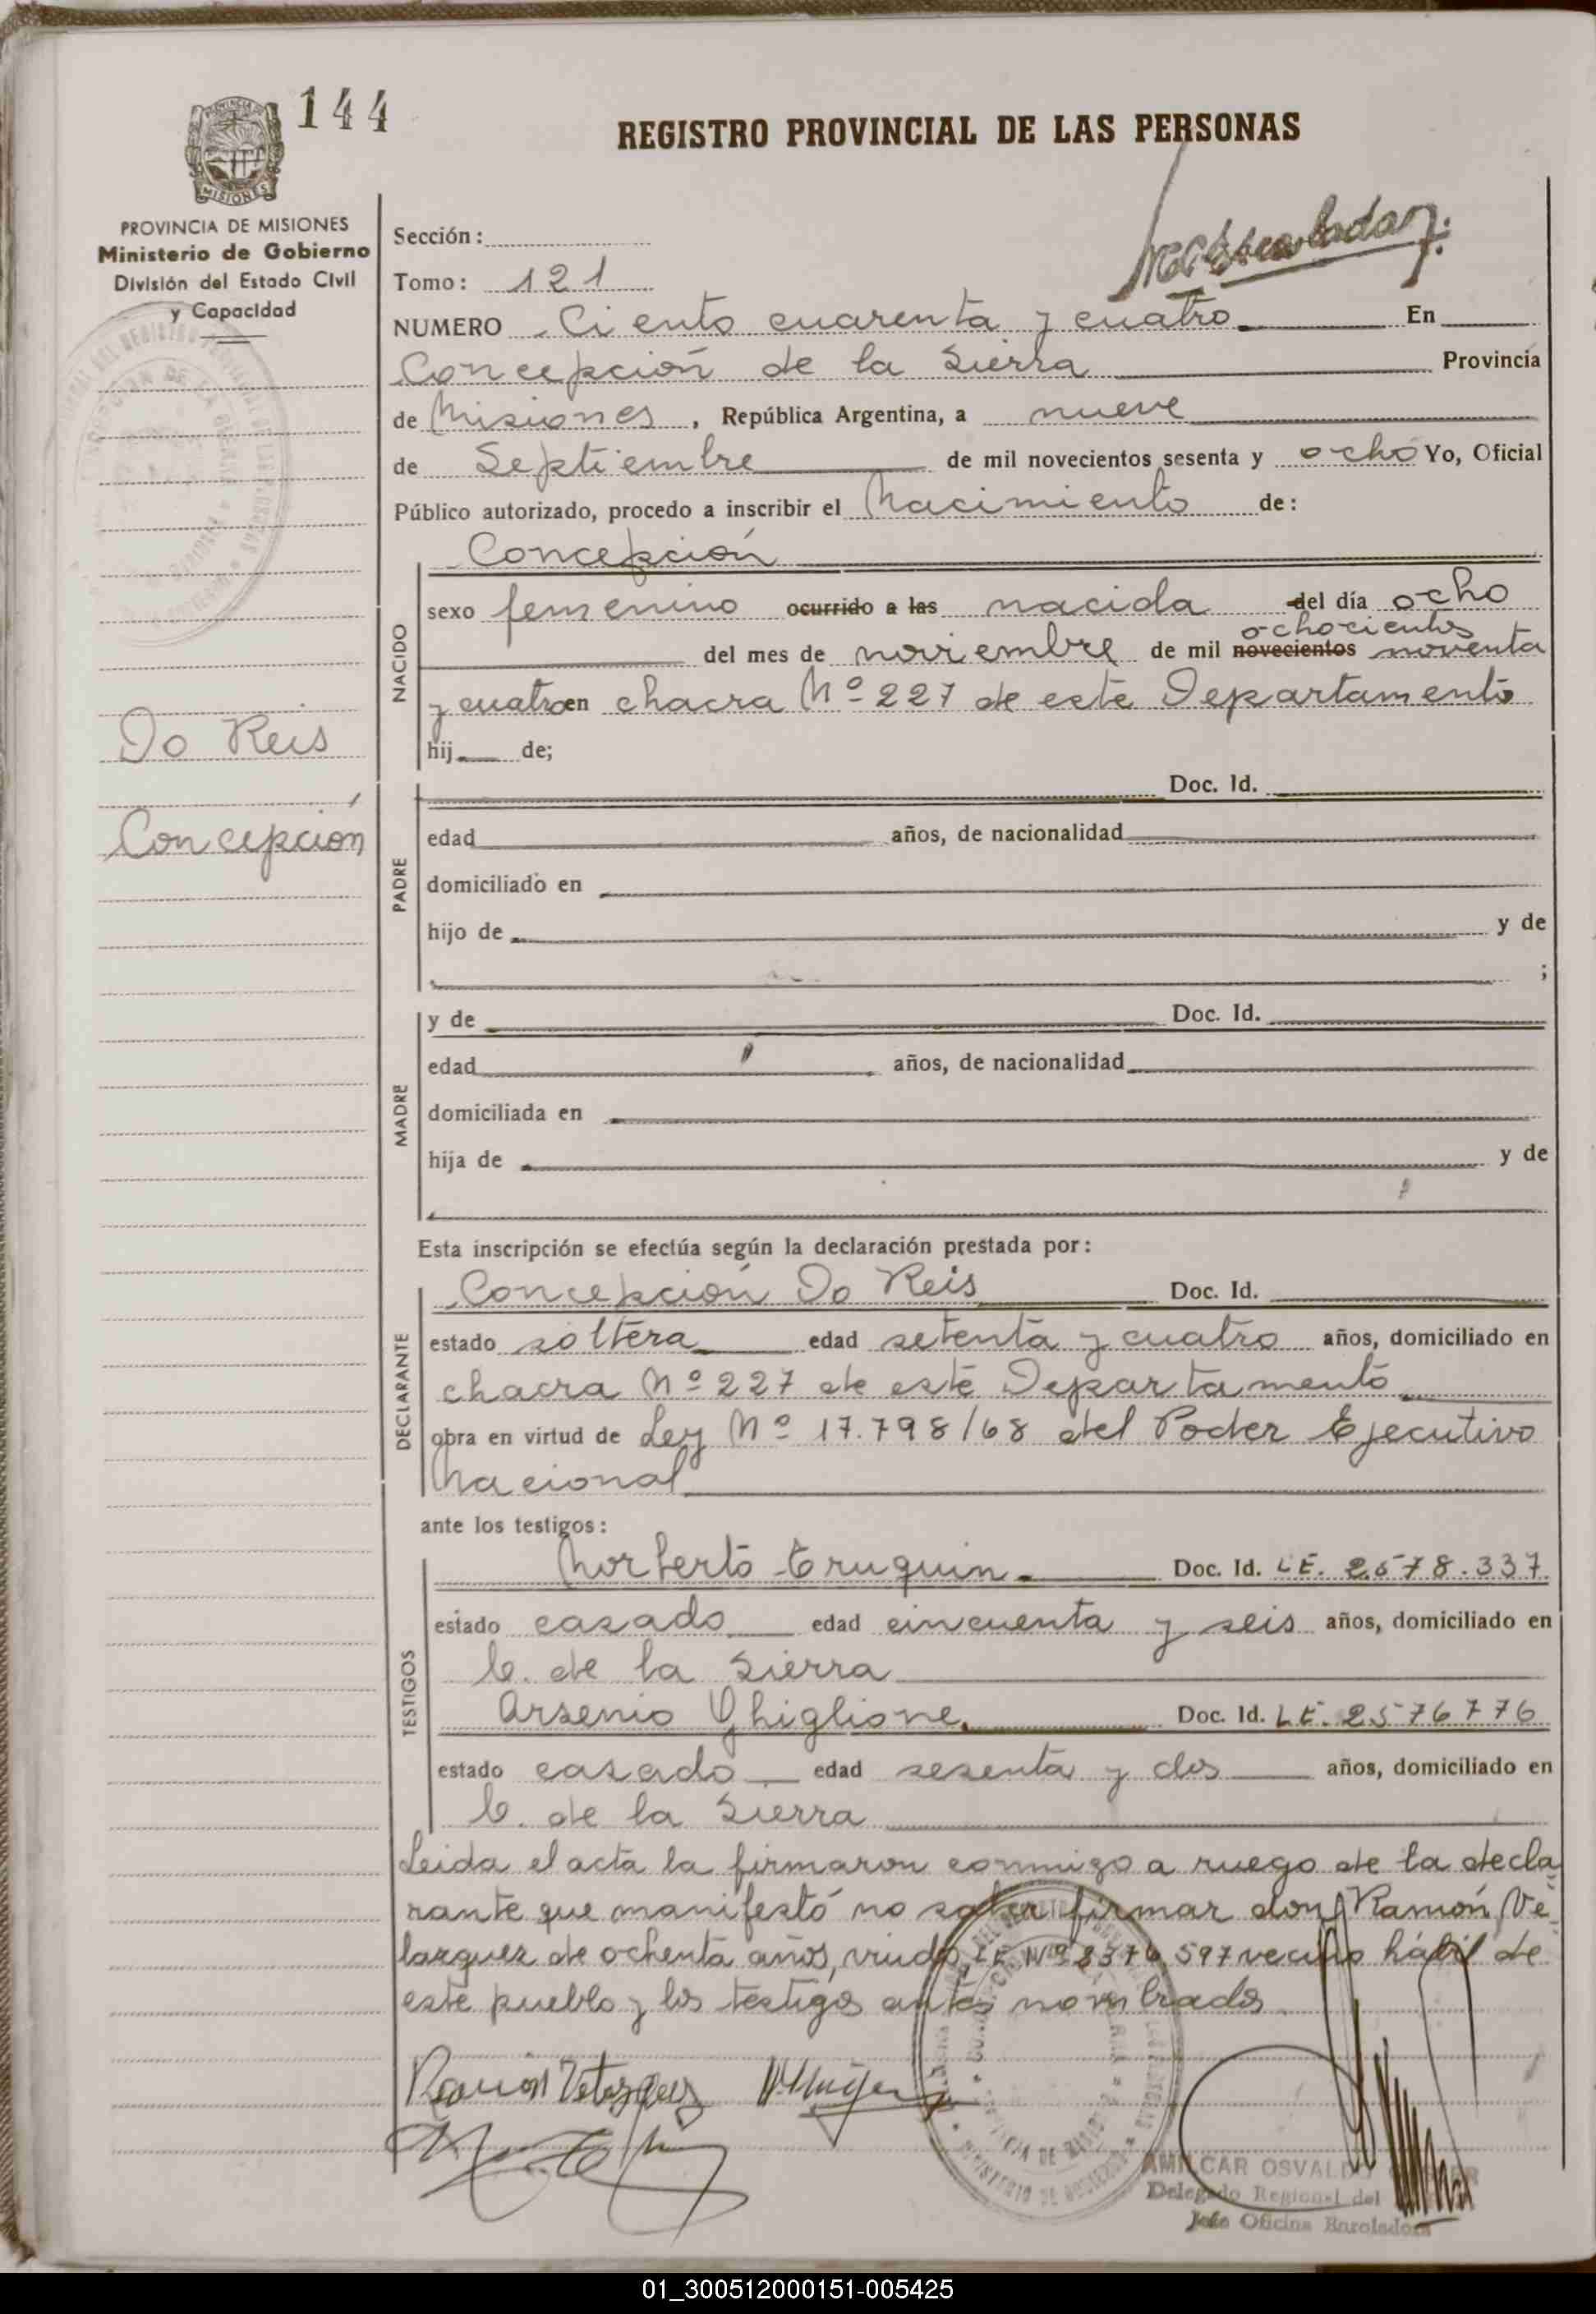 144
REGISTRO PROVINCIAL DE LAS PERSONAS
MISIONES
PROVINCIA DE MISIONES
Ministerio de Gobierno
División del Estado Civil
y Capacidad
Sección:
Tomo: 121
NUMERO Ciento cuarenta y cuatro En
Concepción de la Sierra Provincia
de Misiones, República Argentina, a nueve
de Septiembre de mil novecientos sesenta y ocho Yo, Oficial
Público autorizado, procedo a inscribir el Nacimiento de:
Concepción
NACIDO
sexo femenino ocurrido a las nacida del día ocho
ochocientos
del mes de noviembre de mil novecientos noventa
y cuatro en chacra Nº 227 de este Departamento
hij de;
Do Reis
Concepción
PADRE
Doc. Id.
edad años, de nacionalidad
domiciliado en
hijo de y de
;
MADRE
y de Doc. Id.
edad años, de nacionalidad
domiciliada en
hija de y de
Esta inscripción se efectúa según la declaración prestada por:
DECLARANTE
Concepción Do Reis Doc. Id.
estado soltera edad setenta y cuatro años, domiciliado en
chacra Nº 227 de este Departamento
obra en virtud de Ley Nº 17.798/68 del Poder Ejecutivo
Nacional
ante los testigos:
TESTIGOS
Norberto Eruquin Doc. Id. L.E. 2.578.337
estado casado edad cincuenta y seis años, domiciliado en
C. de la Sierra
Arsenio Ghiglione Doc. Id. L.E. 2576776
estado casado edad sesenta y dos años, domiciliado en
C. de la Sierra
Leida el acta la firmaron conmigo a ruego de la decla
rante que manifestó no saber firmar don Ramón Ve
lazquez de ochenta años, viudo, L.E. Nº 2376.597 vecino hábil de
este pueblo y los testigos antes nombrados
Ramón Velazquez
AMILCAR OSVALDO
Delegado Regional del
Jefe Oficina Enroladora
01_300512000151-005425